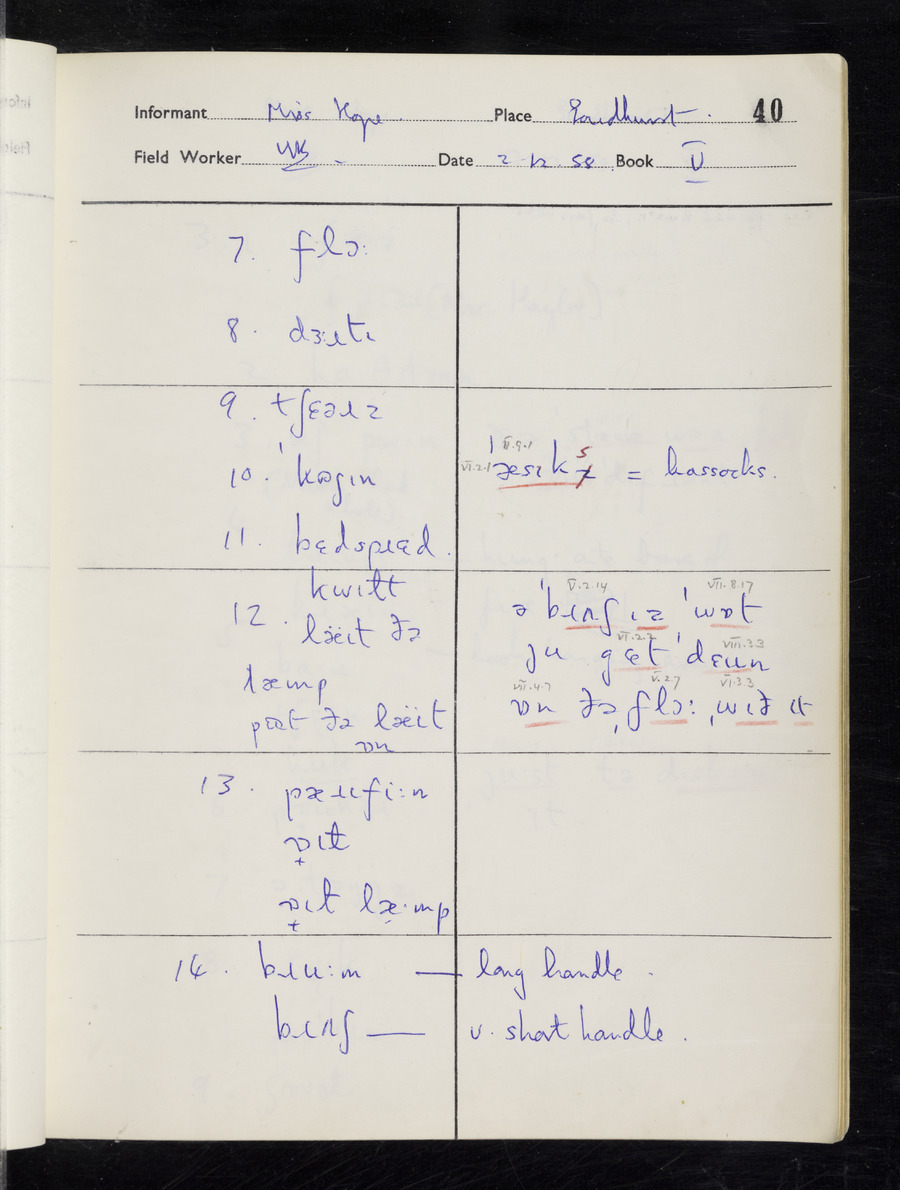 Informant Miss Hope Place Goudhurst. 40
Field Worker Date 2 · 12 · 58 Book V
7. flɔː
8. dɜːɹtɪ
9. tʃɛəɹz
10. ˈkʊʃɪn
VI.2.1 VI.9.1 ˈæsɪks = hassocks.
11. bɛdspɹɛd.
12. kwɪɫt
læ̈ɪt ðə
læmp
pʊt ðə læ̈ɪt
ɒn
V.2.14 VII.8.17
ə ˈbɹʌʃ ɪz ˈwɒt
VI.2.2 VIII.3.3
ju gɛt ˈdɛun
VII.4.7 V.2.7 VI.3.3
ɒn ðə ˌflɔː ˌwɪð ɪt
13. pæɹɪfiːn
ɒɪɫ
ɒɪɫ læˑmp
14. bɹuːm — long handle.
bɹʌʃ — v. short handle.